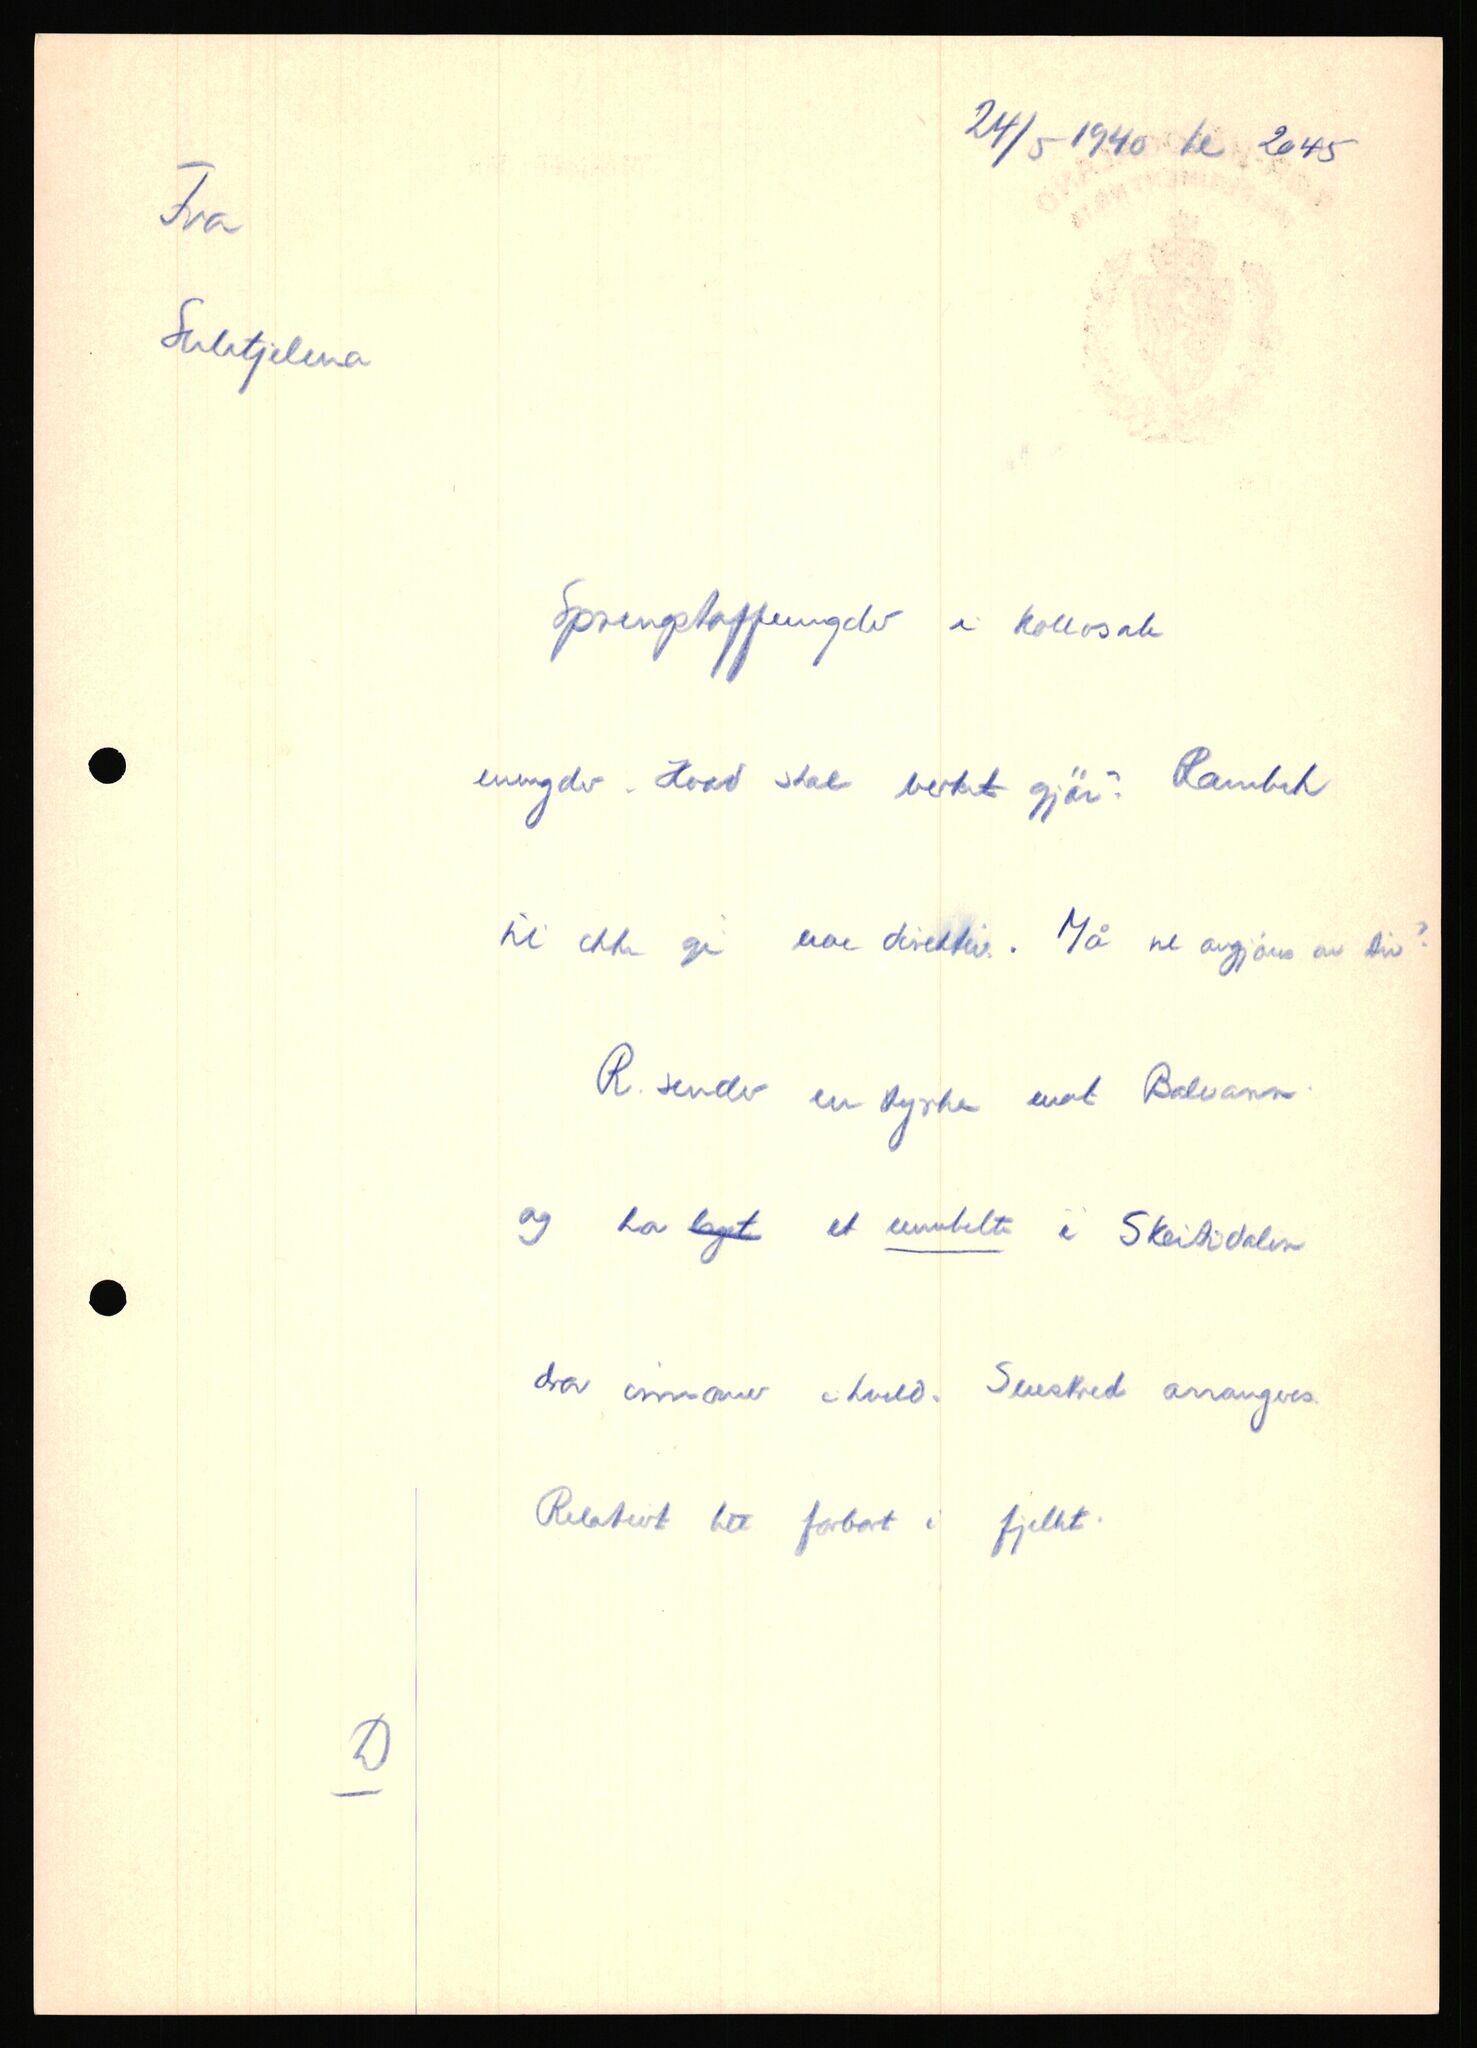 24/5-1940 kl 2045
Fra
Sulitjelma
Sprengstoffmengder i kollosale
mengder. Hvad skal verket gjöre? Rambek
vil ikke gi noe direktiv. Må vel avgjöres av Div?
R. sender en styrke mot Balvann.
og har laget et minebelte i Skeitidalen
drar innover i kveld. Sneskred arrangeres.
Relativt lett forbart i fjellet.
D